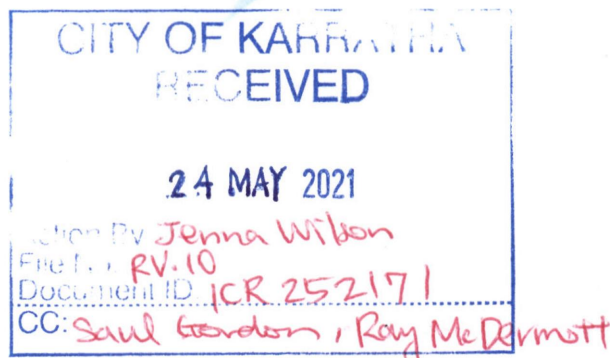 CITY OF KARRATHA
RECEIVED
24 MAY 2021
Action By Jenna Wilson
File No. RV.10
Document ID ICR 252171
CC: Saul Gordon, Ray McDermott